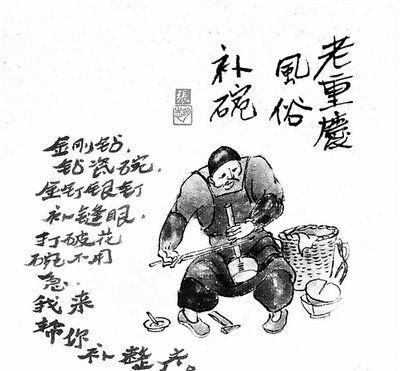 老重慶
風俗
补碗
金刚钻，
钻瓷碗，
金钉银钉
补缝眼，
打破花
碗不用
急，
我来
帮你
补整齐。